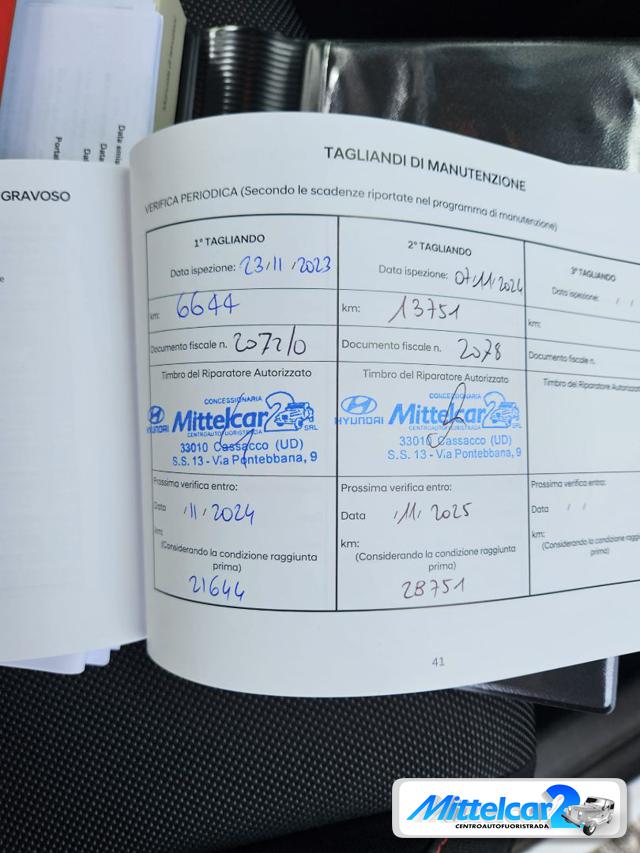 GRAVOSO
TAGLIANDI DI MANUTENZIONE
VERIFICA PERIODICA (Secondo le scadenze riportate nel programma di manutenzione)
1° TAGLIANDO
Data ispezione: 23/11/2023
km: 6644
Documento fiscale n. 2072/0
Timbro del Riparatore Autorizzato
CONCESSIONARIA
HYUNDAI
Mittelcar 2 SRL
CENTROAUTOFUORISTRADA
33010 Cassacco (UD)
S.S. 13 - Via Pontebbana, 9
Prossima verifica entro:
Data /11/2024
km:
(Considerando la condizione raggiunta
prima)
21644
2° TAGLIANDO
Data ispezione: 07/11/2024
km: 13751
Documento fiscale n. 2078
Timbro del Riparatore Autorizzato
CONCESSIONARIA
HYUNDAI
Mittelcar 2 SRL
CENTROAUTOFUORISTRADA
33010 Cassacco (UD)
S.S. 13 - Via Pontebbana, 9
Prossima verifica entro:
Data /11/2025
km:
(Considerando la condizione raggiunta
prima)
28751
3° TAGLIANDO
Data ispezione: / /
km:
Documento fiscale n.
Timbro del Riparatore
Prossima verifica entro:
Data / /
km:
(Considerando la condizione
prima)
41
Mittelcar 2
CENTROAUTOFUORISTRADA